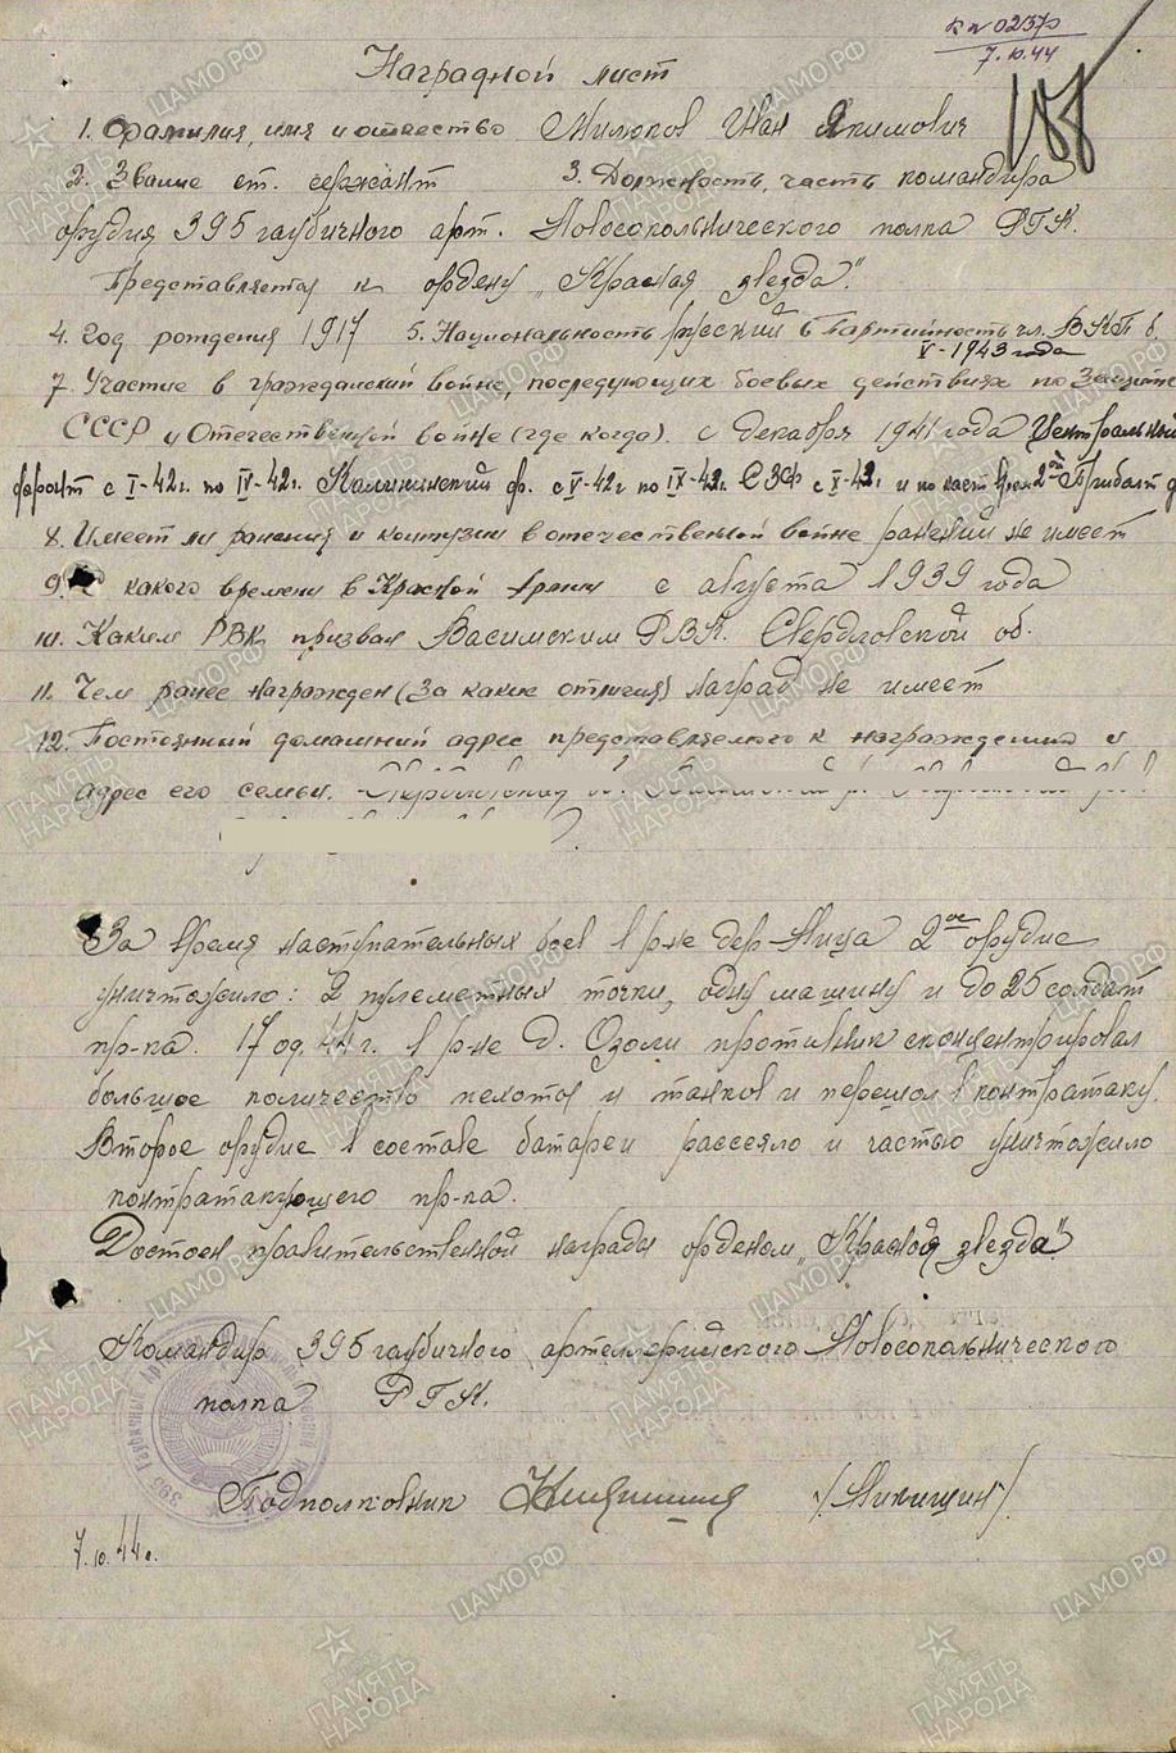 пр № 0237/0
7.10.44
188
Наградной лист
1. Фамилия, имя и отчество Милюков Иван Якимович
2. Звание ст. сержант 3. Должность, часть командира
орудия 395 гаубичного арт. Новосокольнического полка РГК.
Представляется к ордену „Красная звезда".
4. Год рождения 1917 5. Национальность русский 6 Партийность чл. ВКП б.
V-1943 года
7. Участие в гражданской войне, последующих боевых действиях по защите
СССР и Отечественной войне (где когда). с декабря 1941 года Центральный
фронт с I-42г. по IV-42г. Калининский ф. с V-42г по IX-42г. СЗФ с X-42г и по наст время 2ой Прибалт ф
8. Имеет ли ранения и контузии в отечественной войне ранений не имеет
9. С какого времени в Красной Армии с августа 1939 года
10. Каким РВК призван РВК. Свердловской об.
11. Чем ранее награжден (за какие отличия) наград не имеет
12. Постоянный домашний адрес представляемого к награждению и
адрес его семьи.
За время наступательных боев в р-не дер. Лица 2ое орудие
уничтожило: 2 пулеметных точки, одну машину и до 25 солдат
пр-ка. 17.09.44г. в р-не д. Озоли противник сконцентрировал
большое количество пехоты и танков и перешол в контратаку.
Второе орудие в составе батареи рассеяло и частью уничтожило
контратакующего пр-ка.
Достоен правительственной награды орденом „Красная звезда"
Командир 395 гаубичного артеллерийского Новосокольнического
полка РГК.
Подполковник /Никищин/
7.10.44г.
ЦАМО РФ
ПАМЯТЬ НАРОДА